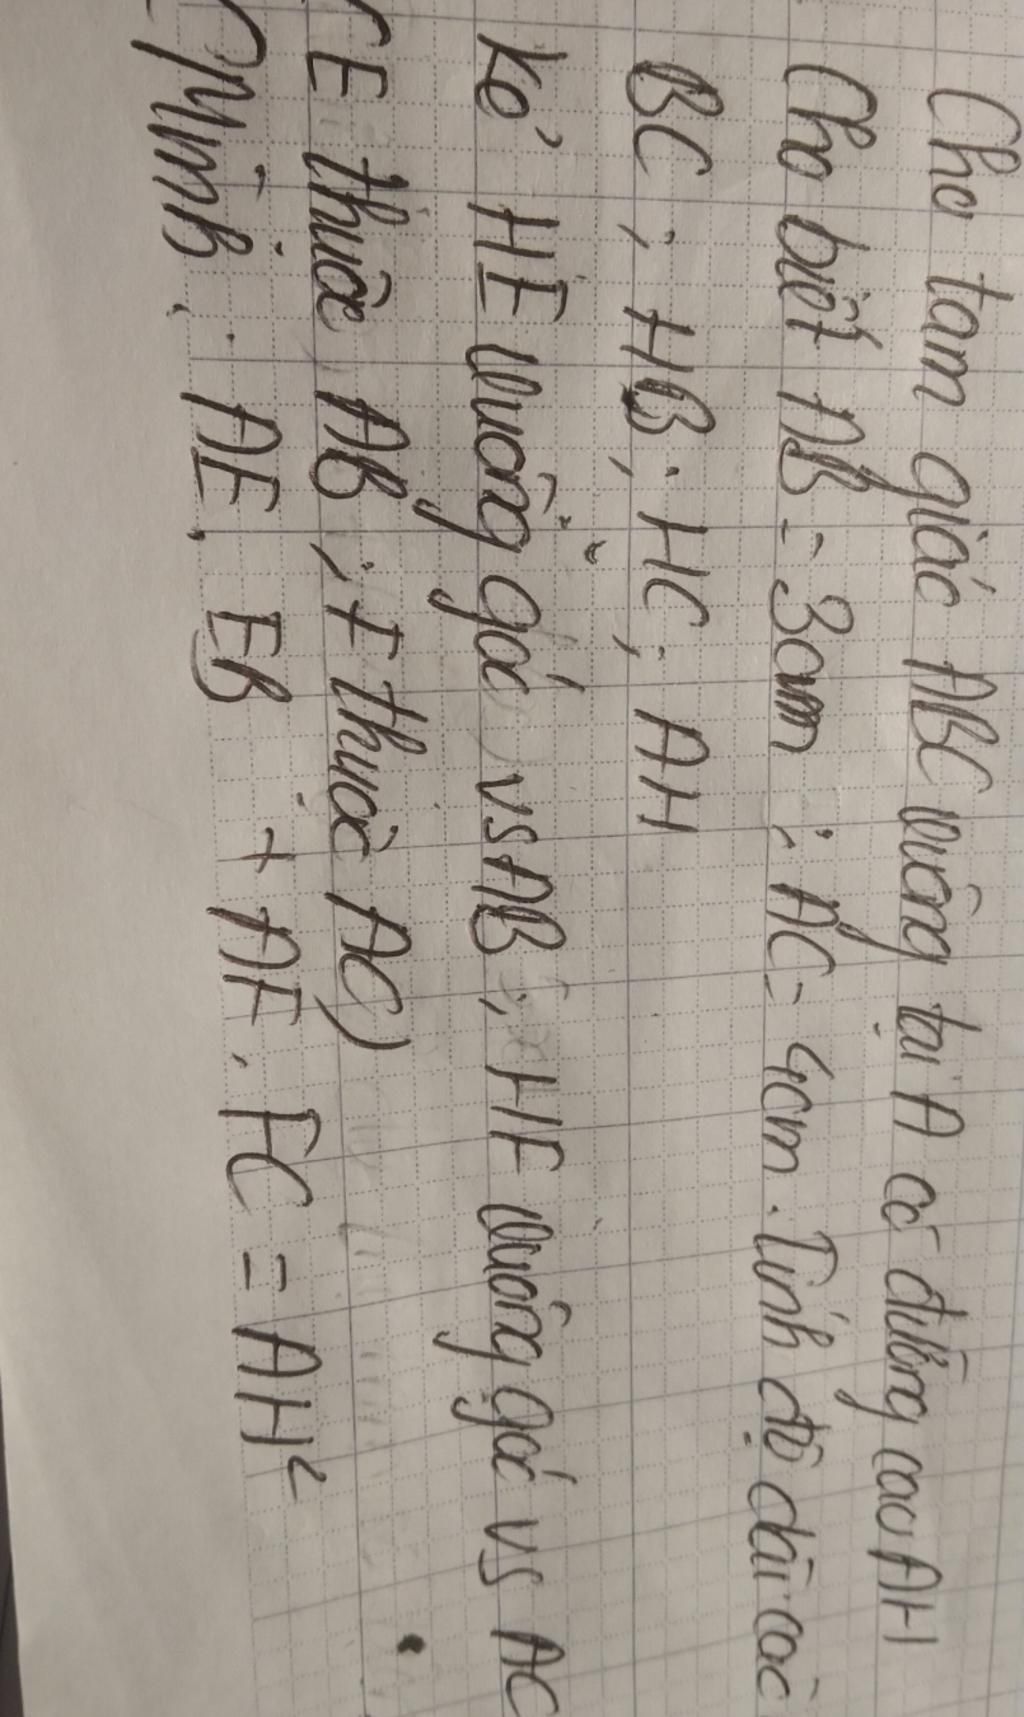 Cho tam giác ABC vuông tại A có đường cao AH
Cho biết AB = 3cm ; AC = 4cm. Tính độ dài các
BC ; HB ; HC ; AH
Kẻ HE vuông góc vs AB ; HF vuông góc vs AC
(E thuộc AB ; F thuộc AC)
C/Minh : AE . EB + AF . FC = AH²